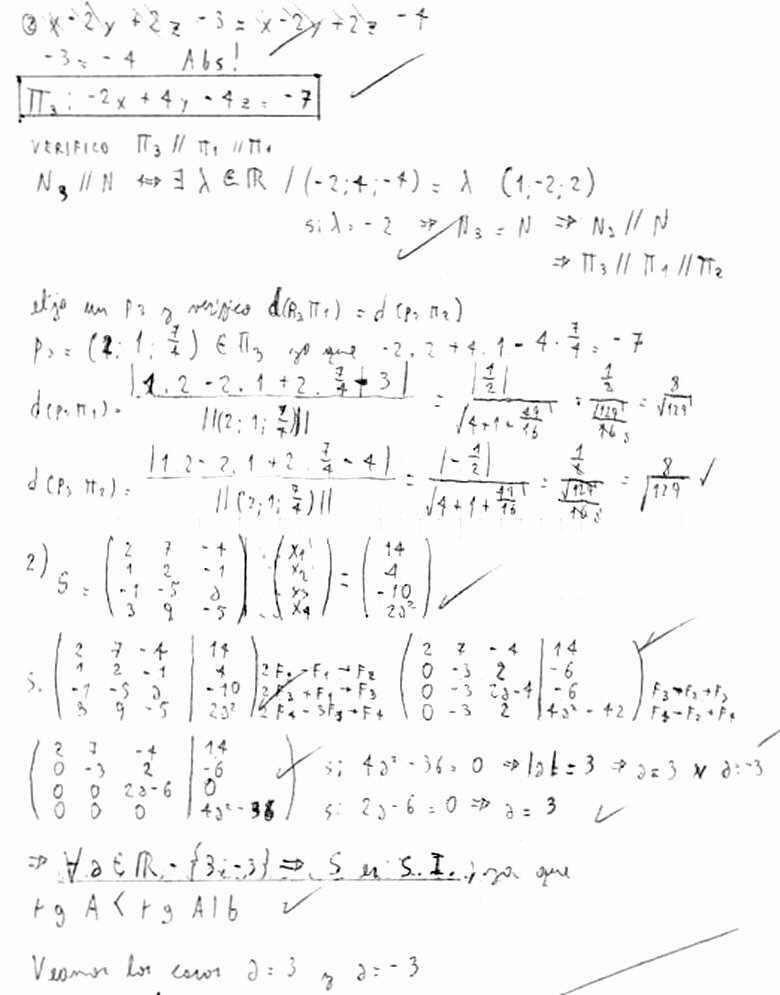 ② x - 2y + 2z - 3 = x - 2y + 2z - 4
-3 = -4 Abs!
Π₃ : -2x + 4y - 4z = -7
VERIFICO Π₃ // Π₁ // Π₁
N₃ // N ⟺ ∃ λ ∈ ℝ / (-2; 4; -4) = λ (1; -2; 2)
si λ = -2 ⇒ N₃ = N ⇒ N₃ // N
⇒ Π₃ // Π₁ // Π₂
elijo un P₃ y verifico d(P₃ Π₁) = d(P₃ Π₂)
P₃ = (2; 1; 7/4) ∈ Π₃ ya que -2.2 + 4.1 - 4.7/4 = -7
d(P₃ Π₁) = |1.2 - 2.1 + 2.7/4 - 3| / ||(2; 1; 7/4)|| = |1/2| / √(4+1+49/16) = (1/2) / √(129/16) = 8/√129
d(P₃ Π₂) = |1.2 - 2.1 + 2.7/4 - 4| / ||(2; 1; 7/4)|| = |-1/2| / √(4+1+49/16) = (1/2) / √(129/16) = 8/√129 ✓
2) S = (2 7 -4; 1 2 -1; -1 -5 a; 3 9 -5) . (x₁; x₂; x₃; x₄) = (14; 4; -10; 2a²)
S. (2 7 -4 | 14; 1 2 -1 | 4; -1 -5 a | -10; 3 9 -5 | 2a²) 2F₂ - F₁ → F₂ 2F₃ + F₁ → F₃ 2F₄ - 3F₁ → F₄ (2 7 -4 | 14; 0 -3 2 | -6; 0 -3 2a-4 | -6; 0 -3 2 | 4a² - 42) F₃ - F₂ → F₃ F₄ - F₂ → F₄
(2 7 -4 | 14; 0 -3 2 | -6; 0 0 2a-6 | 0; 0 0 0 | 4a² - 36) si 4a² - 36 = 0 ⇒ |a| = 3 ⇒ a = 3 v a = -3
si 2a - 6 = 0 ⇒ a = 3
⇒ ∀ a ∈ ℝ - {3; -3} ⇒ S es S.I., ya que
rg A < rg A|b
Veamos los casos a = 3 y a = -3